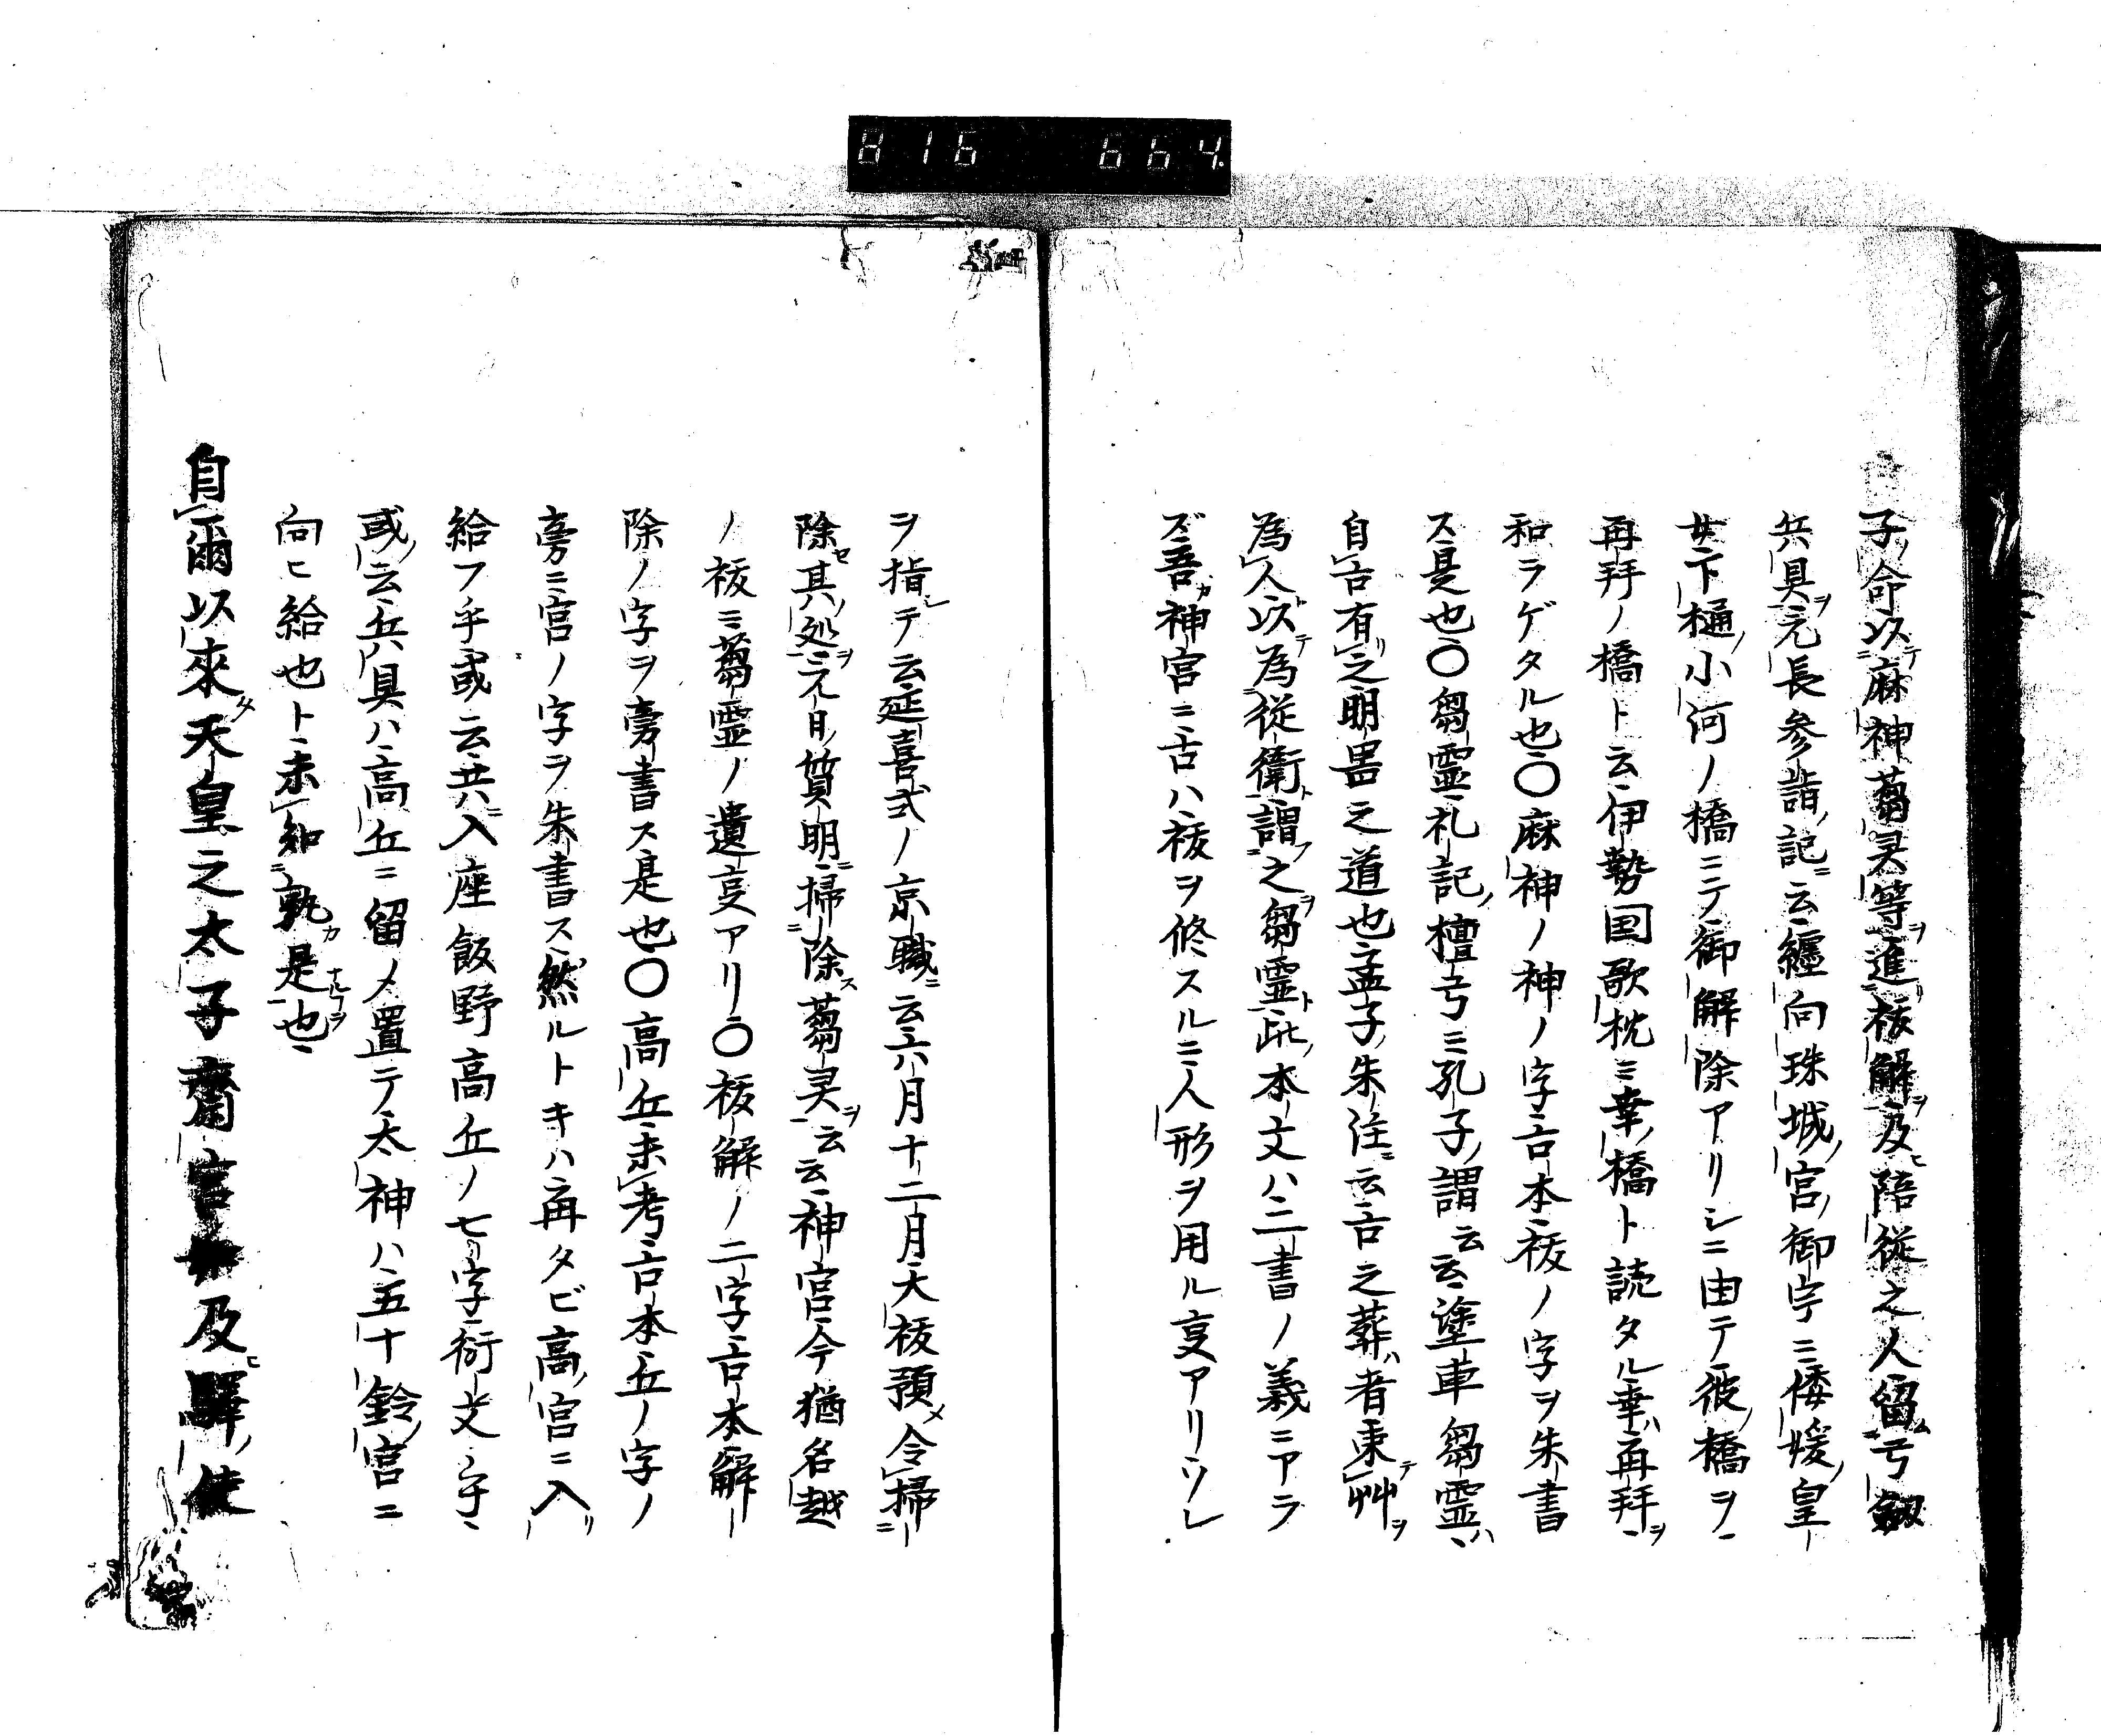 816 664
子ノ命以テ麻神蒭灵等ヲ進リ祓解ヲ及ヒ陪従之人留ム弓劔
兵具ヲ元長参詣ノ記ニ云纏向珠城ノ宮ノ御宇ニ倭媛ノ皇
女下樋ノ小河ノ橋ニテ御解除アリシニ由テ彼ノ橋ヲ
再拜ノ橋ト云伊勢国歌枕ニ幸ノ橋ト読タル幸ハ再拜ヲ
和ラゲタル也〇麻神ノ神ノ字古本祓ノ字ヲ朱書
ス是也〇芻霊礼記ノ檀弓ニ孔子ノ謂云云塗車芻霊ハ
自古有リ之明器之道也孟子ノ朱注ニ云古之葬ハ者束テ艸ヲ
為人ト以テ為従衛ト謂フ之ヲ芻霊ト此ノ本文ハ二書ノ義ニアラ
ズ吾カ神宮ニ古ハ祓ヲ修スルニ人形ヲ用ル叓アリツレ
ヲ指シテ云延喜式ノ京職ニ云六月十二月大祓預メ令掃
除セ其ノ処ヲ元日ノ質明ニ掃除ス蒭灵ヲ云云神宮今猶名越
ノ祓ニ蒭霊ノ遺叓アリ〇祓解ノ二字古本解
除ノ字ヲ旁書ス是也〇高丘未考古本丘ノ字ノ
旁ニ宮ノ字ヲ朱書ス然ルトキハ再タビ高ノ宮ニ入リ
給フ乎或云共ニ入座飯野高丘ノ七字衍文乎
或ノ云兵具ハ高丘ニ留メ置テ太神ハ五十鈴ノ宮ニ
向ヒ給也ト未知ニ孰カ是ナルヲ也
自爾以來タ天皇之太子齋宮及ヒ驛ノ使